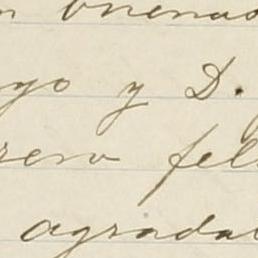 n buenas
go y D.
rero fel
agrada